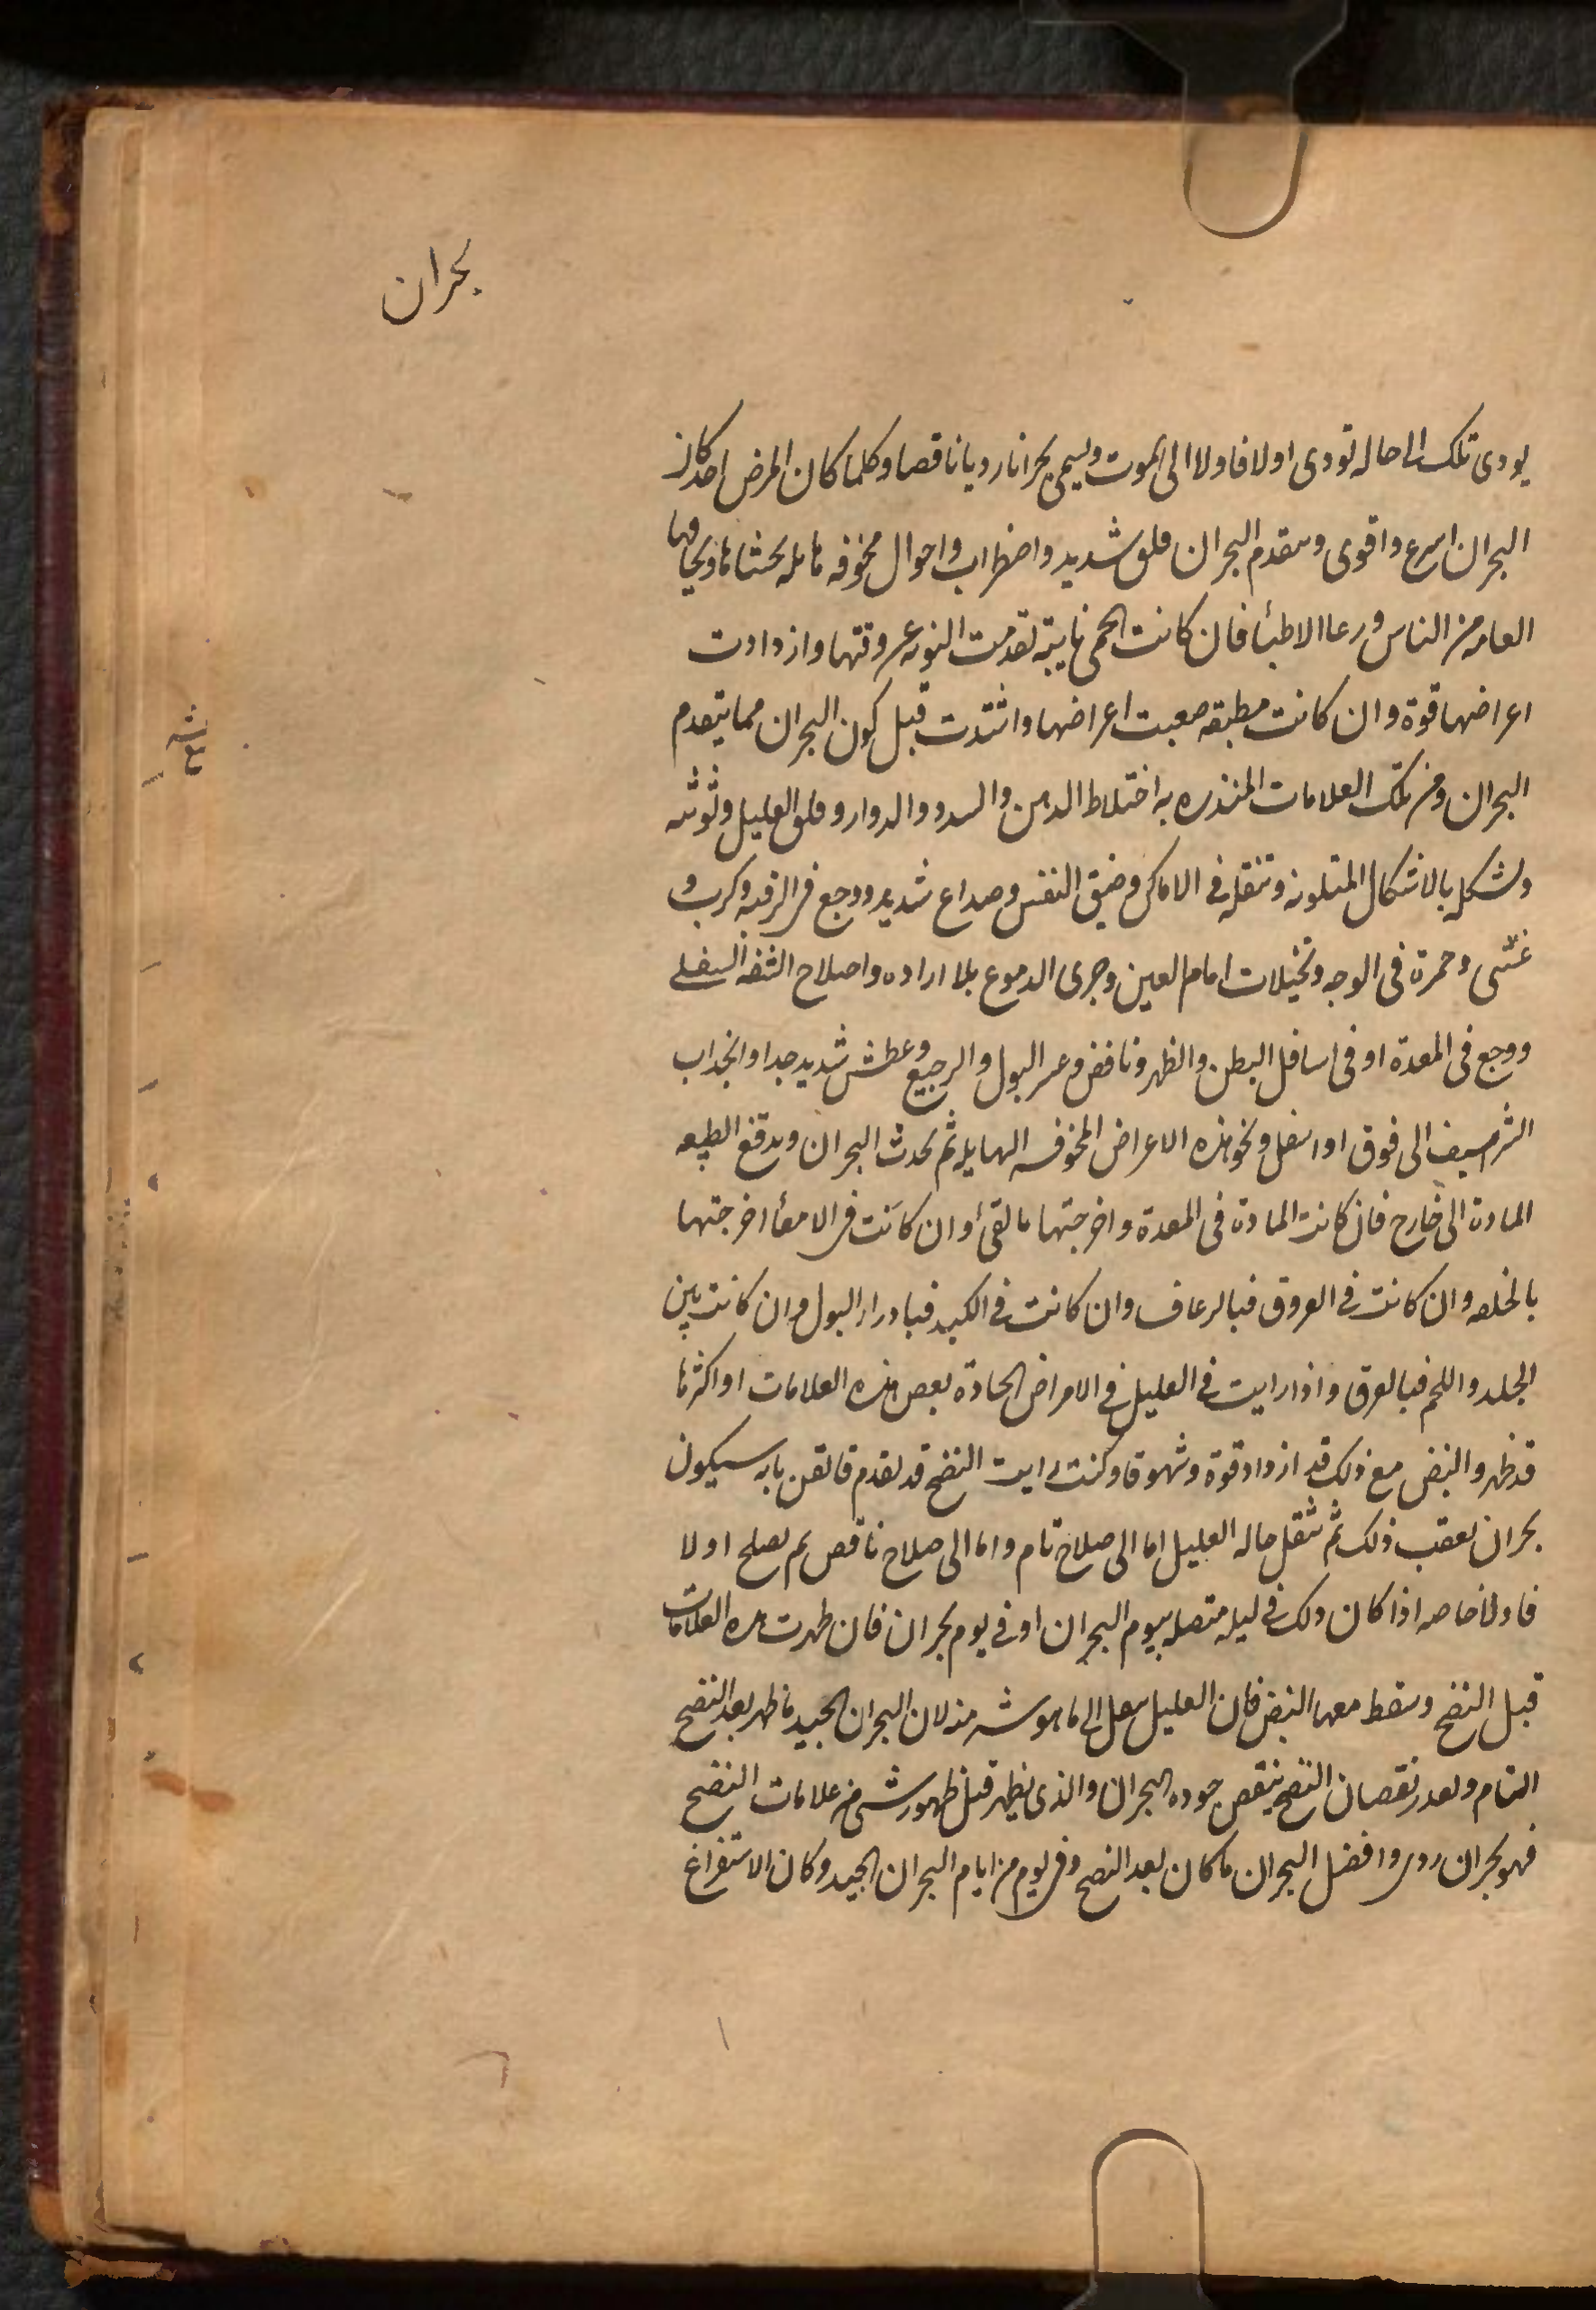 بحران
يودى تلك الحاله تودى اولا فاولا الى الموت ويسمى بحرانا رديا ناقصا وكلما كان المرض احد كان
البحران اسرع واقوى وىىقدم البحران قلق شديد واضطراب واحوال مخوفه هايله
العامه من الناس ورعاا الاطبأ فان كانت الحمى نايبة تقدمت النوبه عن وقتها وازدادت
اعراضها قوة وان كانت مطبقه صعبت اعراضها واشتدت قبل كون البحران مما يتقدم
البحران ومن تلك العلامات المنذره به اختلاط الدهن والسدد والدوار وقلق العليل وتوثبه
وتشكله بالاشكال المتلونه وتنقله فى الاماكن وضيق النفس وصداع شديد ووجع فى الرقبه وكرب و
غشى وحمرة فى الوجه وتخيلات امام العين وجرى الدموع بلا اراده واختلاج الشفه السفلى
ووجع فى المعدة او فى اسافل البطن والظهر ونافض وعسر البول والرجيع وعطش شديد جدا وانجداب
الشراسيف الى فوق او اسفل ونحو هذه الاعراض المخوفه الهايله ثم يحدث البحران ويدفع الطبيعه
المادة الى خارج فان كانت المادة فى المعدة واخرجتها بالقئ وان كانت فى الامعأ اخرجتها
بالخلفه وان كانت فى العروق فبالرعاف وان كانت فى الكبد فبادرار البول وان كانت بين
الجلد واللحم فبالعرق واذا رايت فى العليل فى الامراض الحادة بعض هذه العلامات او اكثرها
قد ظهر والنبض مع ذلك قد ازداد قوة وشهوقا وكنت رايت النضج قد تقدم فايقن بانه سيكون
بحران يعقب ذلك ثم تنقل حاله العليل اما الى صلاح تام واما الى صلاح ناقص ثم يصلح اولا
فاولا خاصه اذا كان ذلك فى ليله متصله بيوم البحران او فى يوم بحران فان ظهرت هذه العلامات
قبل النضج وسقط معها النبض فان العليل ىىىقل الى ما هو شر منه لان البحران الجيد ما ظهر بعد النضج
التام وبقدر نقصان النضج ينقص جوده البحران والذى يظهر قبل ظهور شى من علامات النضج
فهو بحران ردى وافضل البحران ما كان بعد النضج وفى يوم من ايام البحران الجيد وكان الاستفراغ